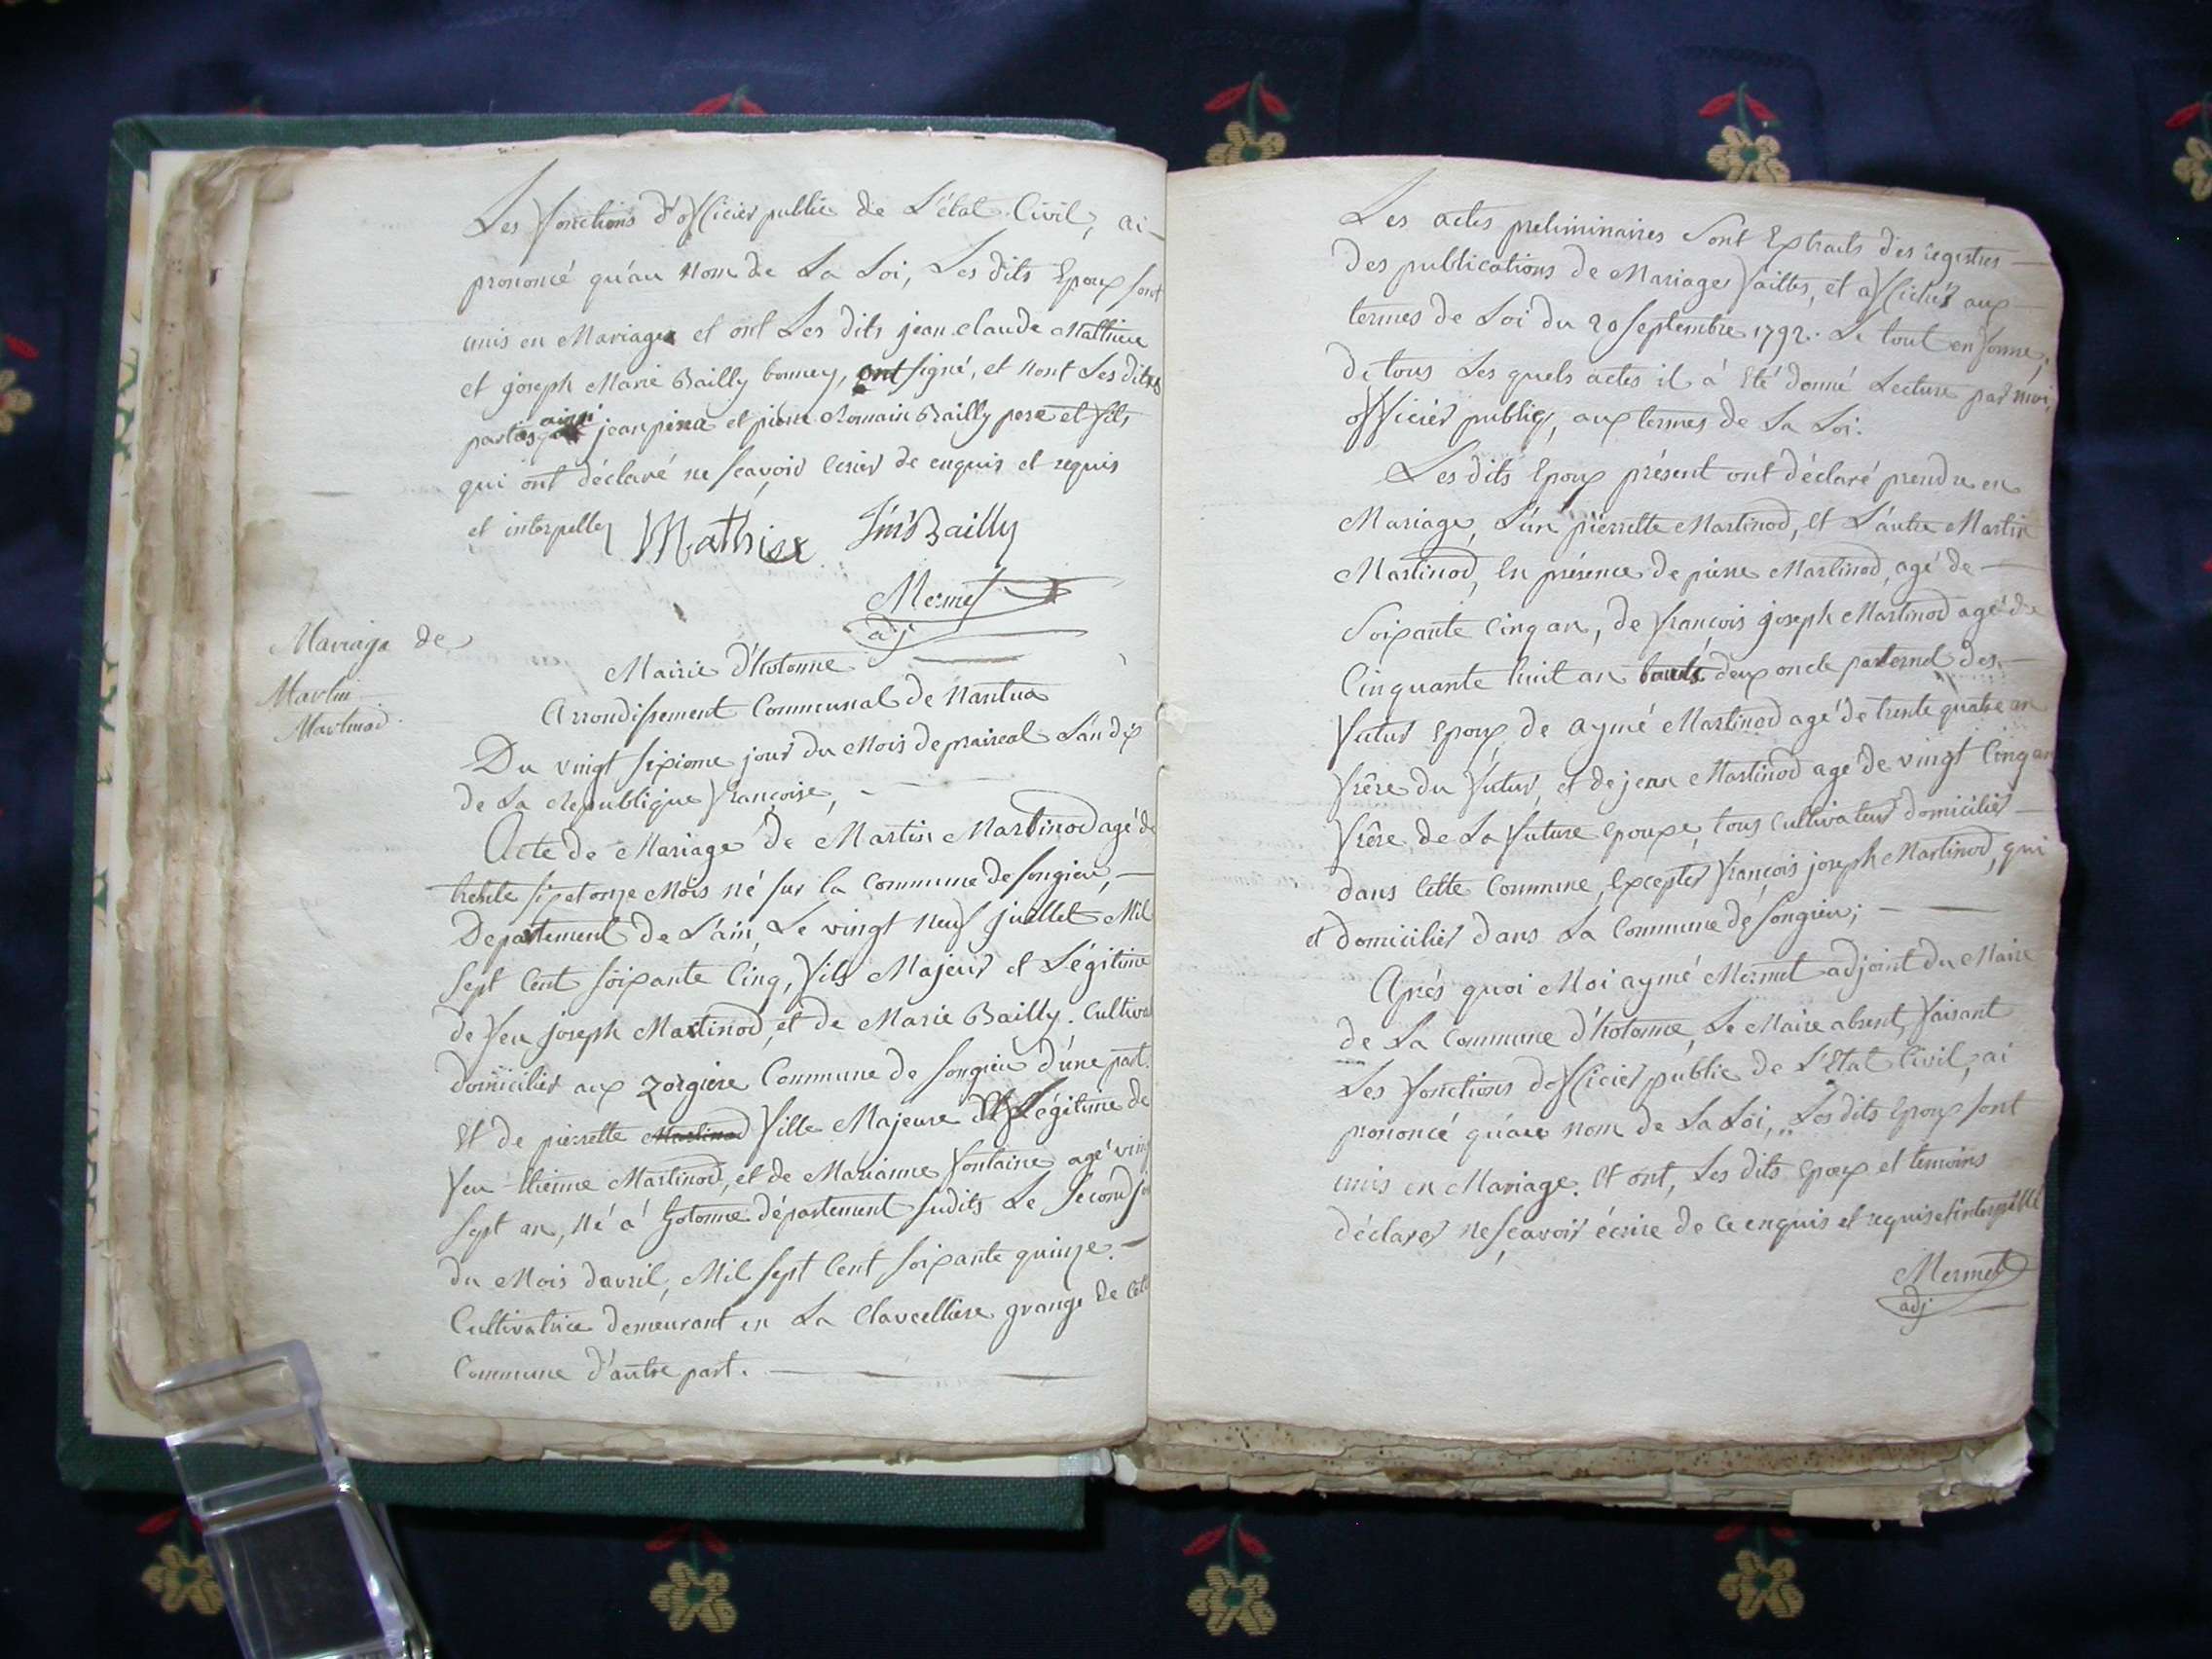 Les fonctions d'officier public de L'état Civil, ai
prononcé qu'au nom de La Loi, Les dits Epoux sont
unis en Mariage et ont Les dits jean claude Mathieu
et joseph Marie Bailly bonney, ont signé, et nont Les dites
parties ainsi jean pierre et pierre Romain Bailly pere et fils
qui ont déclaré ne scavoir ecrier de enquis et requis
et interpeller Mathieu Bailly
Mermet
adj
Mariage de
Martin
Martinod.
Mairie d'hotonne
Arrondissement Communal de Nantua
Du vingt sixiome jour du Mois de praireal L'an dix
de La Republique françoise,
Acte de Mariage de Martin Martinod agé de
trente six et onze Mois né sur la Commune de songieu,
Departement de L'ain, Le vingt neuf juillet Mil
Sept Cent soixante Cinq, fils Majeur et Légitime
de feu joseph Martinod, et de Marie Bailly. Cultiva
domicilier aux Zorgiere Commune de songieu d'une part.
Et de pierrette Martinod fille Majeure et Légitime de
feu Etienne Martinod, et de Marianne fontaine agé ving
sept an, né à hotonne département sudits Le second jo
du Mois davril, Mil sept Cent soixante quinze.
Cultivatrice demeurant en La Clavelliere grange de Cette
Commune d'autre part.
Les actes preliminaires sont Extraits des registres
des publications de Mariages faittes, et afficher aux
termes de Loi du 20 septembre 1792. Le tout en forme,
de tous Les quels actes il à été donné Lecture par moi,
officier public, aux termes de La Loi.
Les dits Epoux présent ont déclaré prendre en
Mariage, L'un pierrette Martinod, et L'autre Martin
Martinod, En présence de pierre Martinod, agé de
Soixante Cinq an, de françois joseph Martinod agé de
Cinquante huit an deux oncle paternel des
futur Epoux de aymé Martinod agé de trente quatre an
frêre du futur, et de jean Martinod age de vingt Cinq an
frêre de La future epouxe, tous Cultivateur domicilier
dans Cette Commune, Excepter françois joseph Martinod, qui
et domicilier dans La Commune de songieu;
Après quoi Moi aymé Mermet adjoint du Maire
de La Commune d'hotonne, Le Maire absent, faisant
Les fonctions d'officier public de L'Etat Civil, ai
prononcé qu'au nom de La Loi, Les dits Epoux sont
unis en Mariage. Et ont, Les dits Epoux et temoins
déclarer ne scavoir écrire de ce enquis et requis et interpellé
Mermet
adj